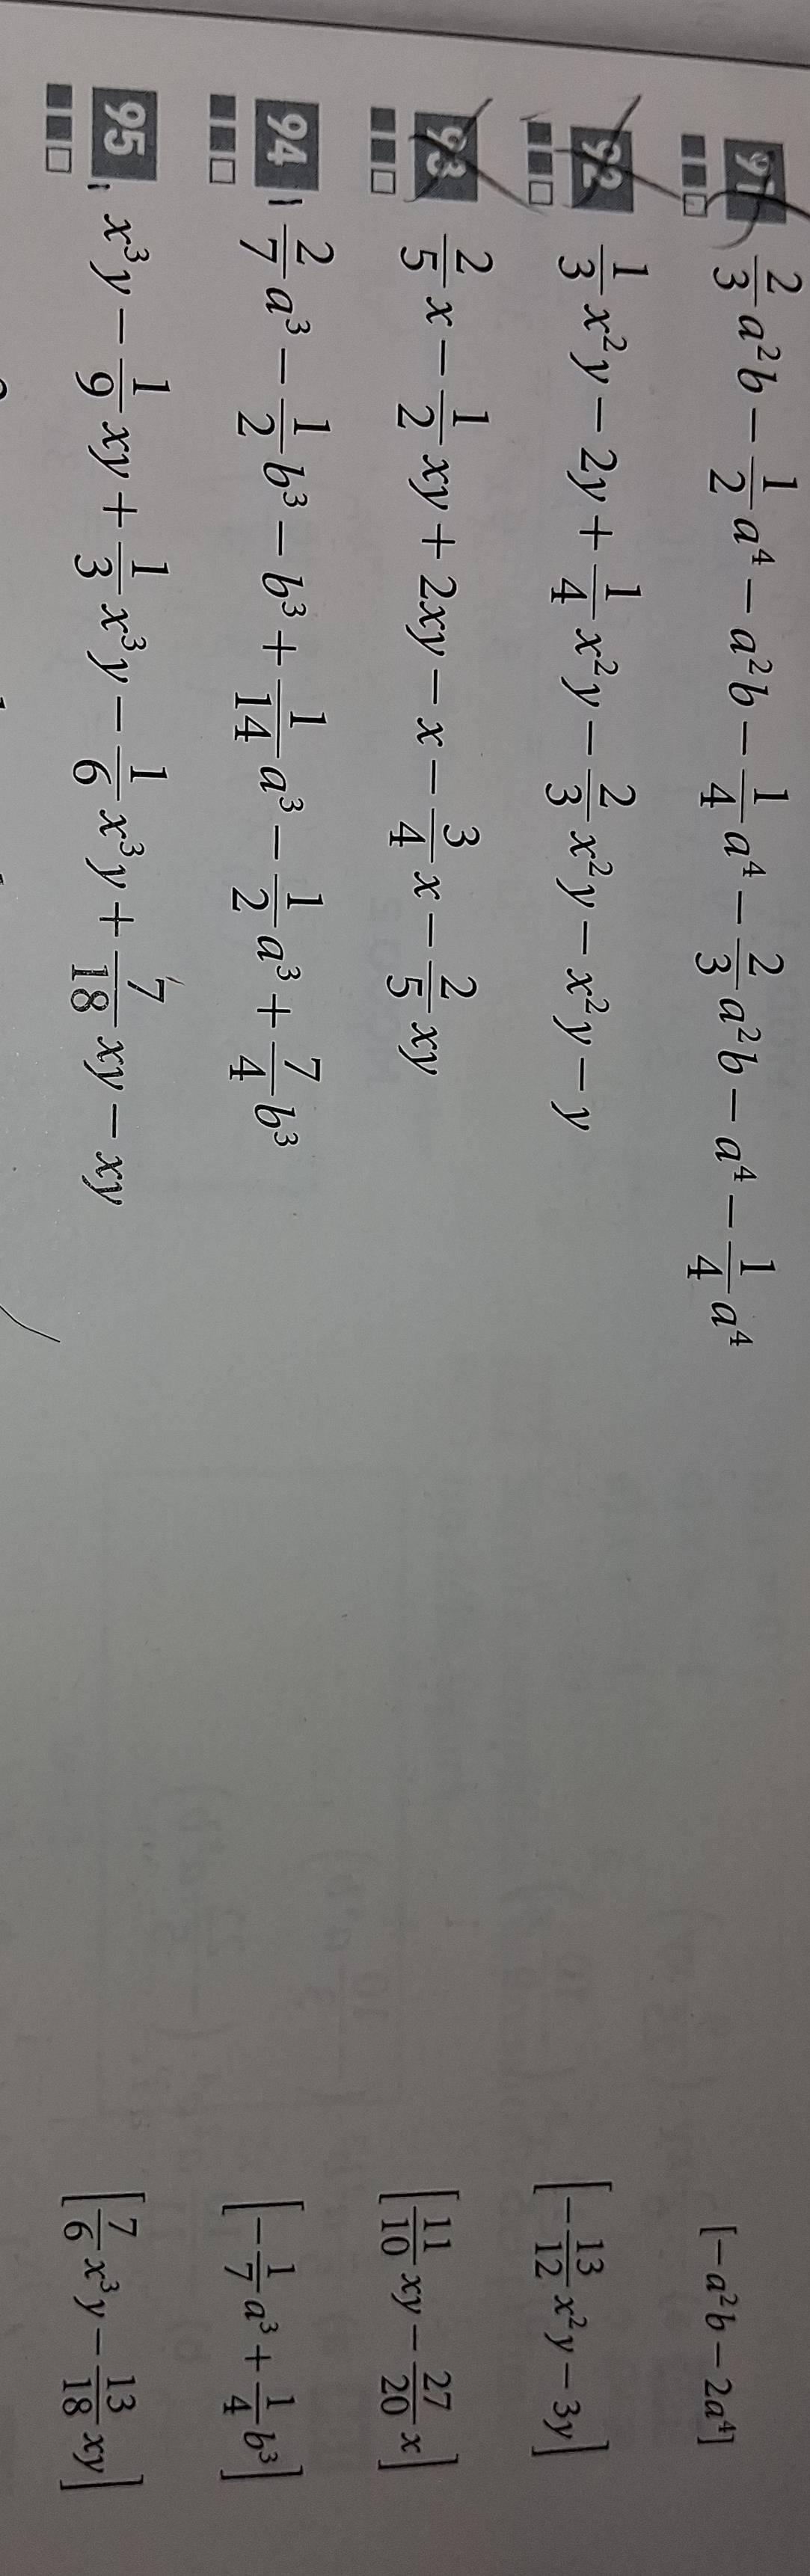 91 2/3 a²b − 1/2 a⁴ − a²b − 1/4 a⁴ − 2/3 a²b − a⁴ − 1/4 a⁴ [−a²b − 2a⁴]
92 1/3 x²y − 2y + 1/4 x²y − 2/3 x²y − x²y − y [−13/12 x²y − 3y]
93 2/5 x − 1/2 xy + 2xy − x − 3/4 x − 2/5 xy [11/10 xy − 27/20 x]
94 2/7 a³ − 1/2 b³ − b³ + 1/14 a³ − 1/2 a³ + 7/4 b³ [−1/7 a³ + 1/4 b³]
95 x³y − 1/9 xy + 1/3 x³y − 1/6 x³y + 7/18 xy − xy [7/6 x³y − 13/18 xy]